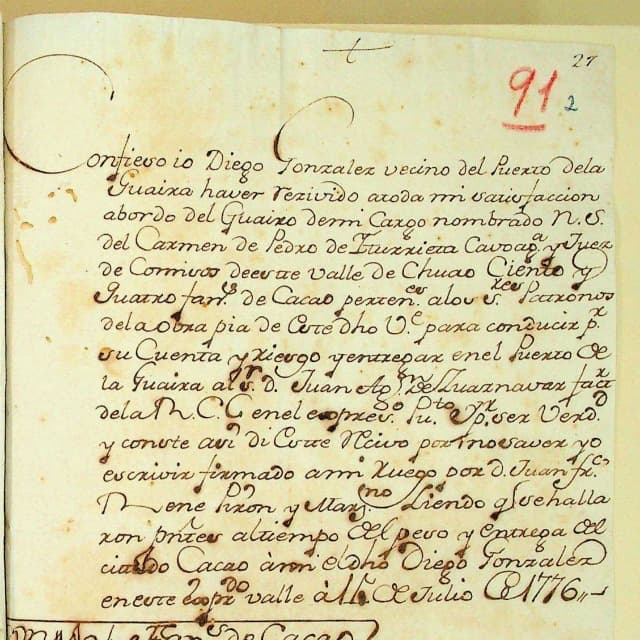 27
91
2
Confieso io Diego Gonzalez vecino del Puerto dela
Guaira haver rezivido atoda mi satisfaccion
abordo del Guairo demi Cargo nombrado N. S.
del Carmen de Pedro de Iturrieta Cavoapª. y Juez
de Comisos deeste valle de Chuao Ciento y
Quatro fanˢ. de Cacao pertenᵉˢ. alos sʳᵉˢ Patronos
dela obra pia de Este dho Vᵉ para conducir pʳ.
su Cuenta y riesgo y entregar enel Puerto de
la Guaira al sʳ. d. Juan Agⁿ. de Zuaznavar factʳ
dela R. C. G enel expresᵈᵒ. Puᵗᵒ. y pʳ. ser Verdᵈ.
y conste asi di Este Recivo por no saver yo
escrivir firmado ami Ruego por d. Juan frᶜᵒ
Rene Piron y Marⁿᵒ Liendo q se halla
ron pñtes altiempo del peso y entrega del
citado Cacao à mi el dho Diego Gonzalez
eneste valle à de Julio de 1776
fanˢ de Cacao